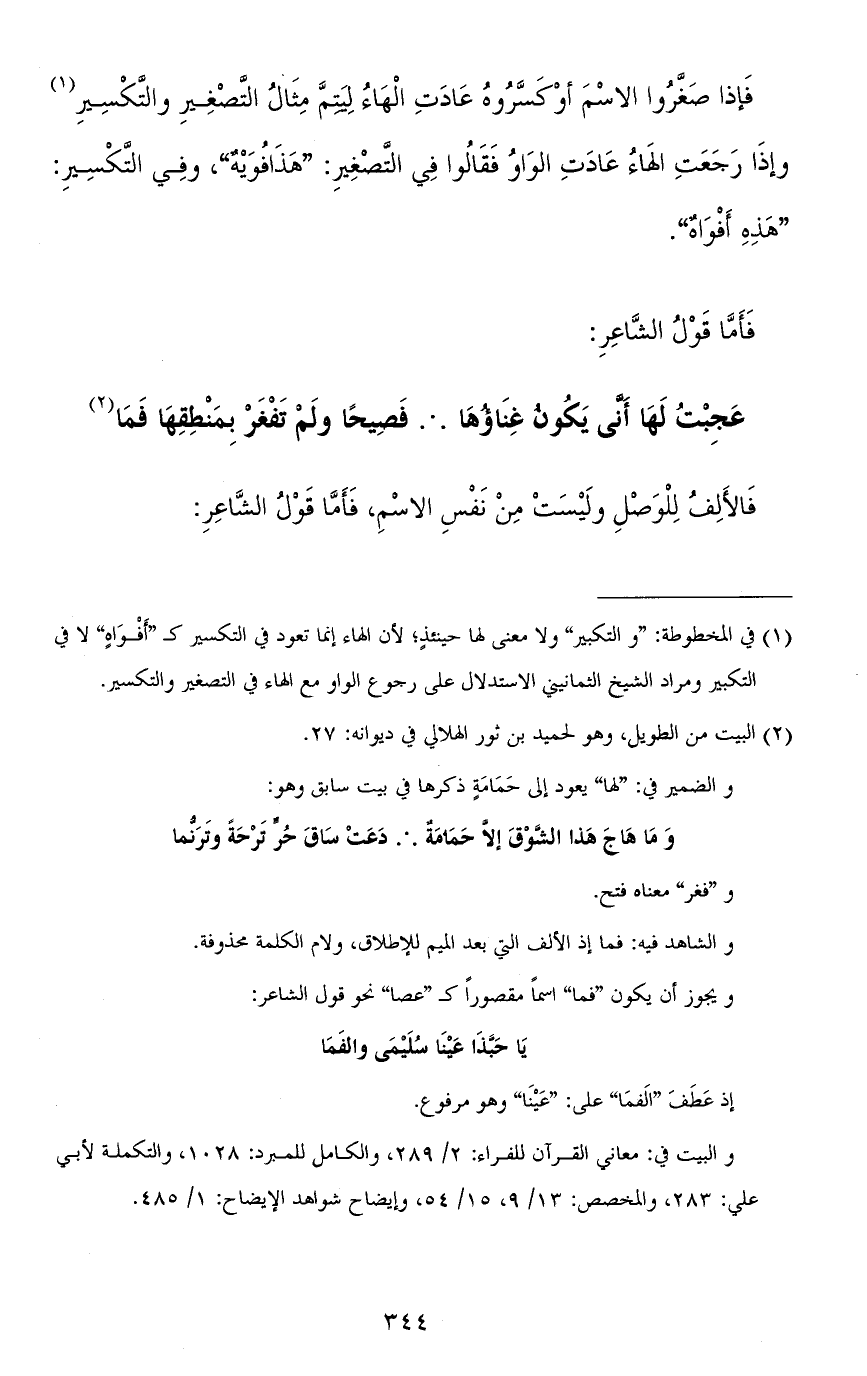 فَإذا صَغَّرُوا الاسْمَ أوْ كَسَّرُوهُ عَادَتِ الْهَاءُ لِيَتِمَّ مِثَالُ التَّصْغِـيرِ والتَّكْسِـيرِ(١)
وإذَا رَجَعَتِ الهَاءُ عَادَتِ الوَاوُ فَقَالُوا فِي التَّصْغِيرِ: ”هَذَافُوَيْهٌ“، وفِـي التَّكْسِـيرِ:
”هَذِهِ أَفْوَاهٌ“.
فَأَمَّا قَوْلُ الشَّاعِرِ:
عَجِبْتُ لَهَا أَنَّى يَكُونُ غِنَاؤُهَا .·. فَصِيحًا ولَمْ تَفْغَرْ بِمَنْطِقِهَا فَمَا(٢)
فَالأَلِفُ لِلْوَصْلِ ولَيْسَتْ مِنْ نَفْسِ الاسْمِ، فَأَمَّا قَوْلُ الشَّاعِرِ:
(١) في المخطوطة: ”و التكبير“ ولا معنى لها حينئذٍ؛ لأن الهاء إنما تعود في التكسير كـ ”أَفْـوَاهٍ“ لا في
التكبير ومراد الشيخ الثمانيني الاستدلال على رجوع الواو مع الهاء في التصغير والتكسير.
(٢) البيت من الطويل، وهو لحميد بن ثور الهلالي في ديوانه: ٢٧.
و الضمير في: ”لها“ يعود إلى حَمَامَةٍ ذكرها في بيت سابق وهو:
وَ مَا هَاجَ هَذا الشَّوْقَ إلاَّ حَمَامَةٌ .·. دَعَتْ سَاقَ حُرٍّ تَرْحَةً وتَرَنُّما
و ”فغر“ معناه فتح.
و الشاهد فيه: فما إذ الألف التي بعد الميم للإطلاق، ولام الكلمة محذوفة.
و يجوز أن يكون ”فما“ اسماً مقصوراً كـ ”عصا“ نحو قول الشاعر:
يَا حَبَّذَا عَيْنَا سُلَيْمَى والفَمَا
إذ عَطَفَ ”الَفمَا“ على: ”عَيْنَا“ وهو مرفوع.
و البيت في: معاني القـرآن للفراء: ٢/ ٢٨٩، والكـامل للمـبرد: ١٠٢٨، والتكملـة لأبـي
علي: ٢٨٣، والمخصص: ١٣/ ٩، ١٥/ ٥٤، وإيضاح شواهد الإيضاح: ١/ ٤٨٥.
٣٤٤